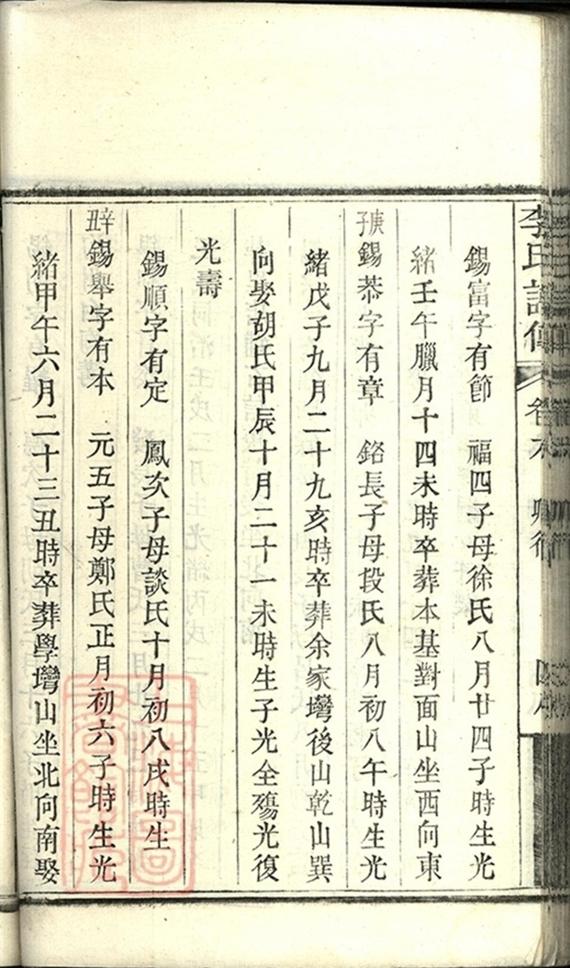 李氏譜傳
卷
錫富字有節 福四子母徐氏八月廿四子時生光
緒壬午臘月十四未時卒葬本基對面山坐西向東
庚子錫恭字有章 鉻長子母段氏八月初八午時生光
緒戊子九月二十九亥時卒葬余家塆後山乾山巽
向娶胡氏甲辰十月二十一未時生子光全殤光復
光壽
錫順字有定 鳳次子母談氏十月初八戌時生
辛丑錫舉字有本 元五子母鄭氏正月初六子時生光
緒甲午六月二十三丑時卒葬學塆山坐北向南娶